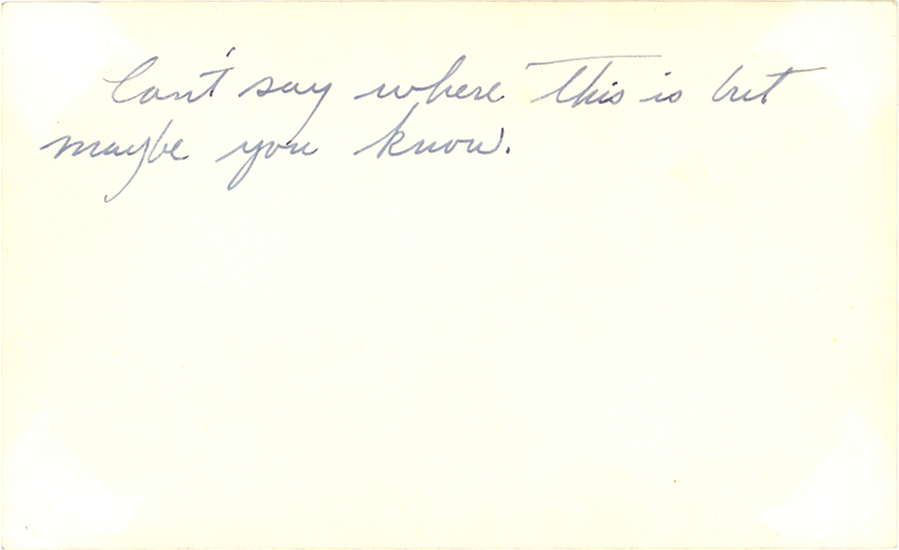 Can't say where this is but
maybe you know.